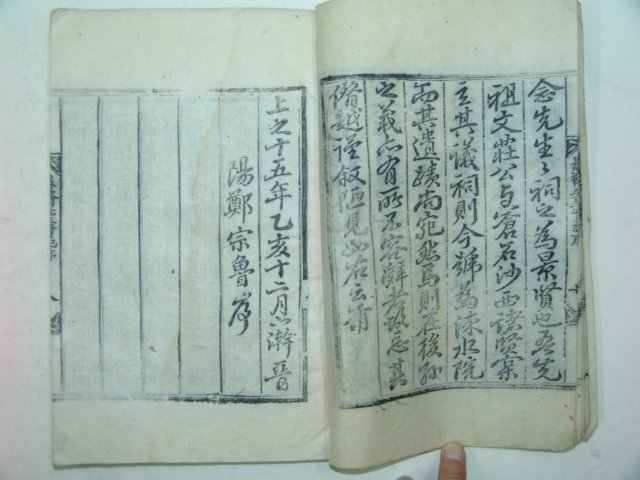 念先生之祠之為景賢也吾先
祖文莊公与蒼石沙西諸賢宲
主其議祠則今號為涑水院
而其遺蹟尚宛然焉則在後孫
之義亦有所不容辭者故忘其
僭越謹叙陋見如右云爾
上之十五年乙亥十二月下澣晉
陽鄭宗魯序